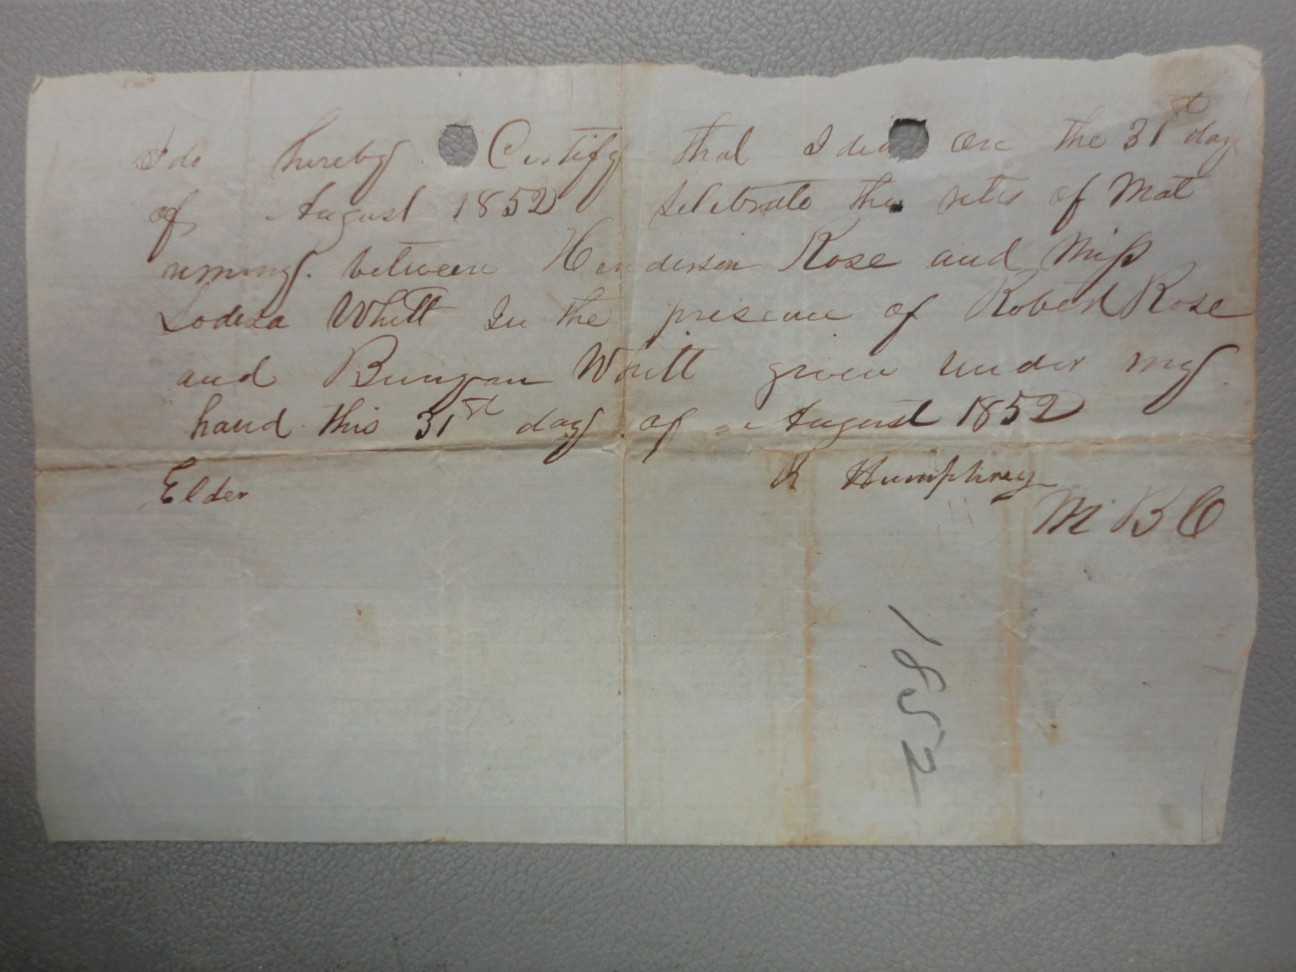 I do hereby Certify that I did on the 31st day
of August 1852 selebrate the rites of Mat
rimony. between Henderson Rose and Miss
Lodeza Whitt In the presence of Robert Rose
and Bunyan Whitt given under my
hand this 31st day of August 1852
Elder R Humphrey
M B C
1852